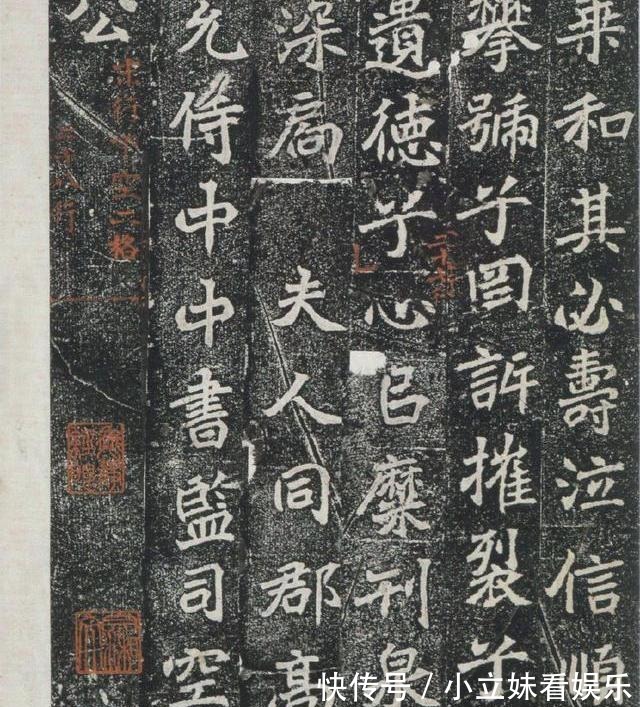 秉和其必壽泣信順
攀號于罔訴摧裂于
遺德于心㠯糜刊泉
深裔 夫人同郡高
允侍中中書監司空
公
空二格
快传号 / 小立妹看娱乐